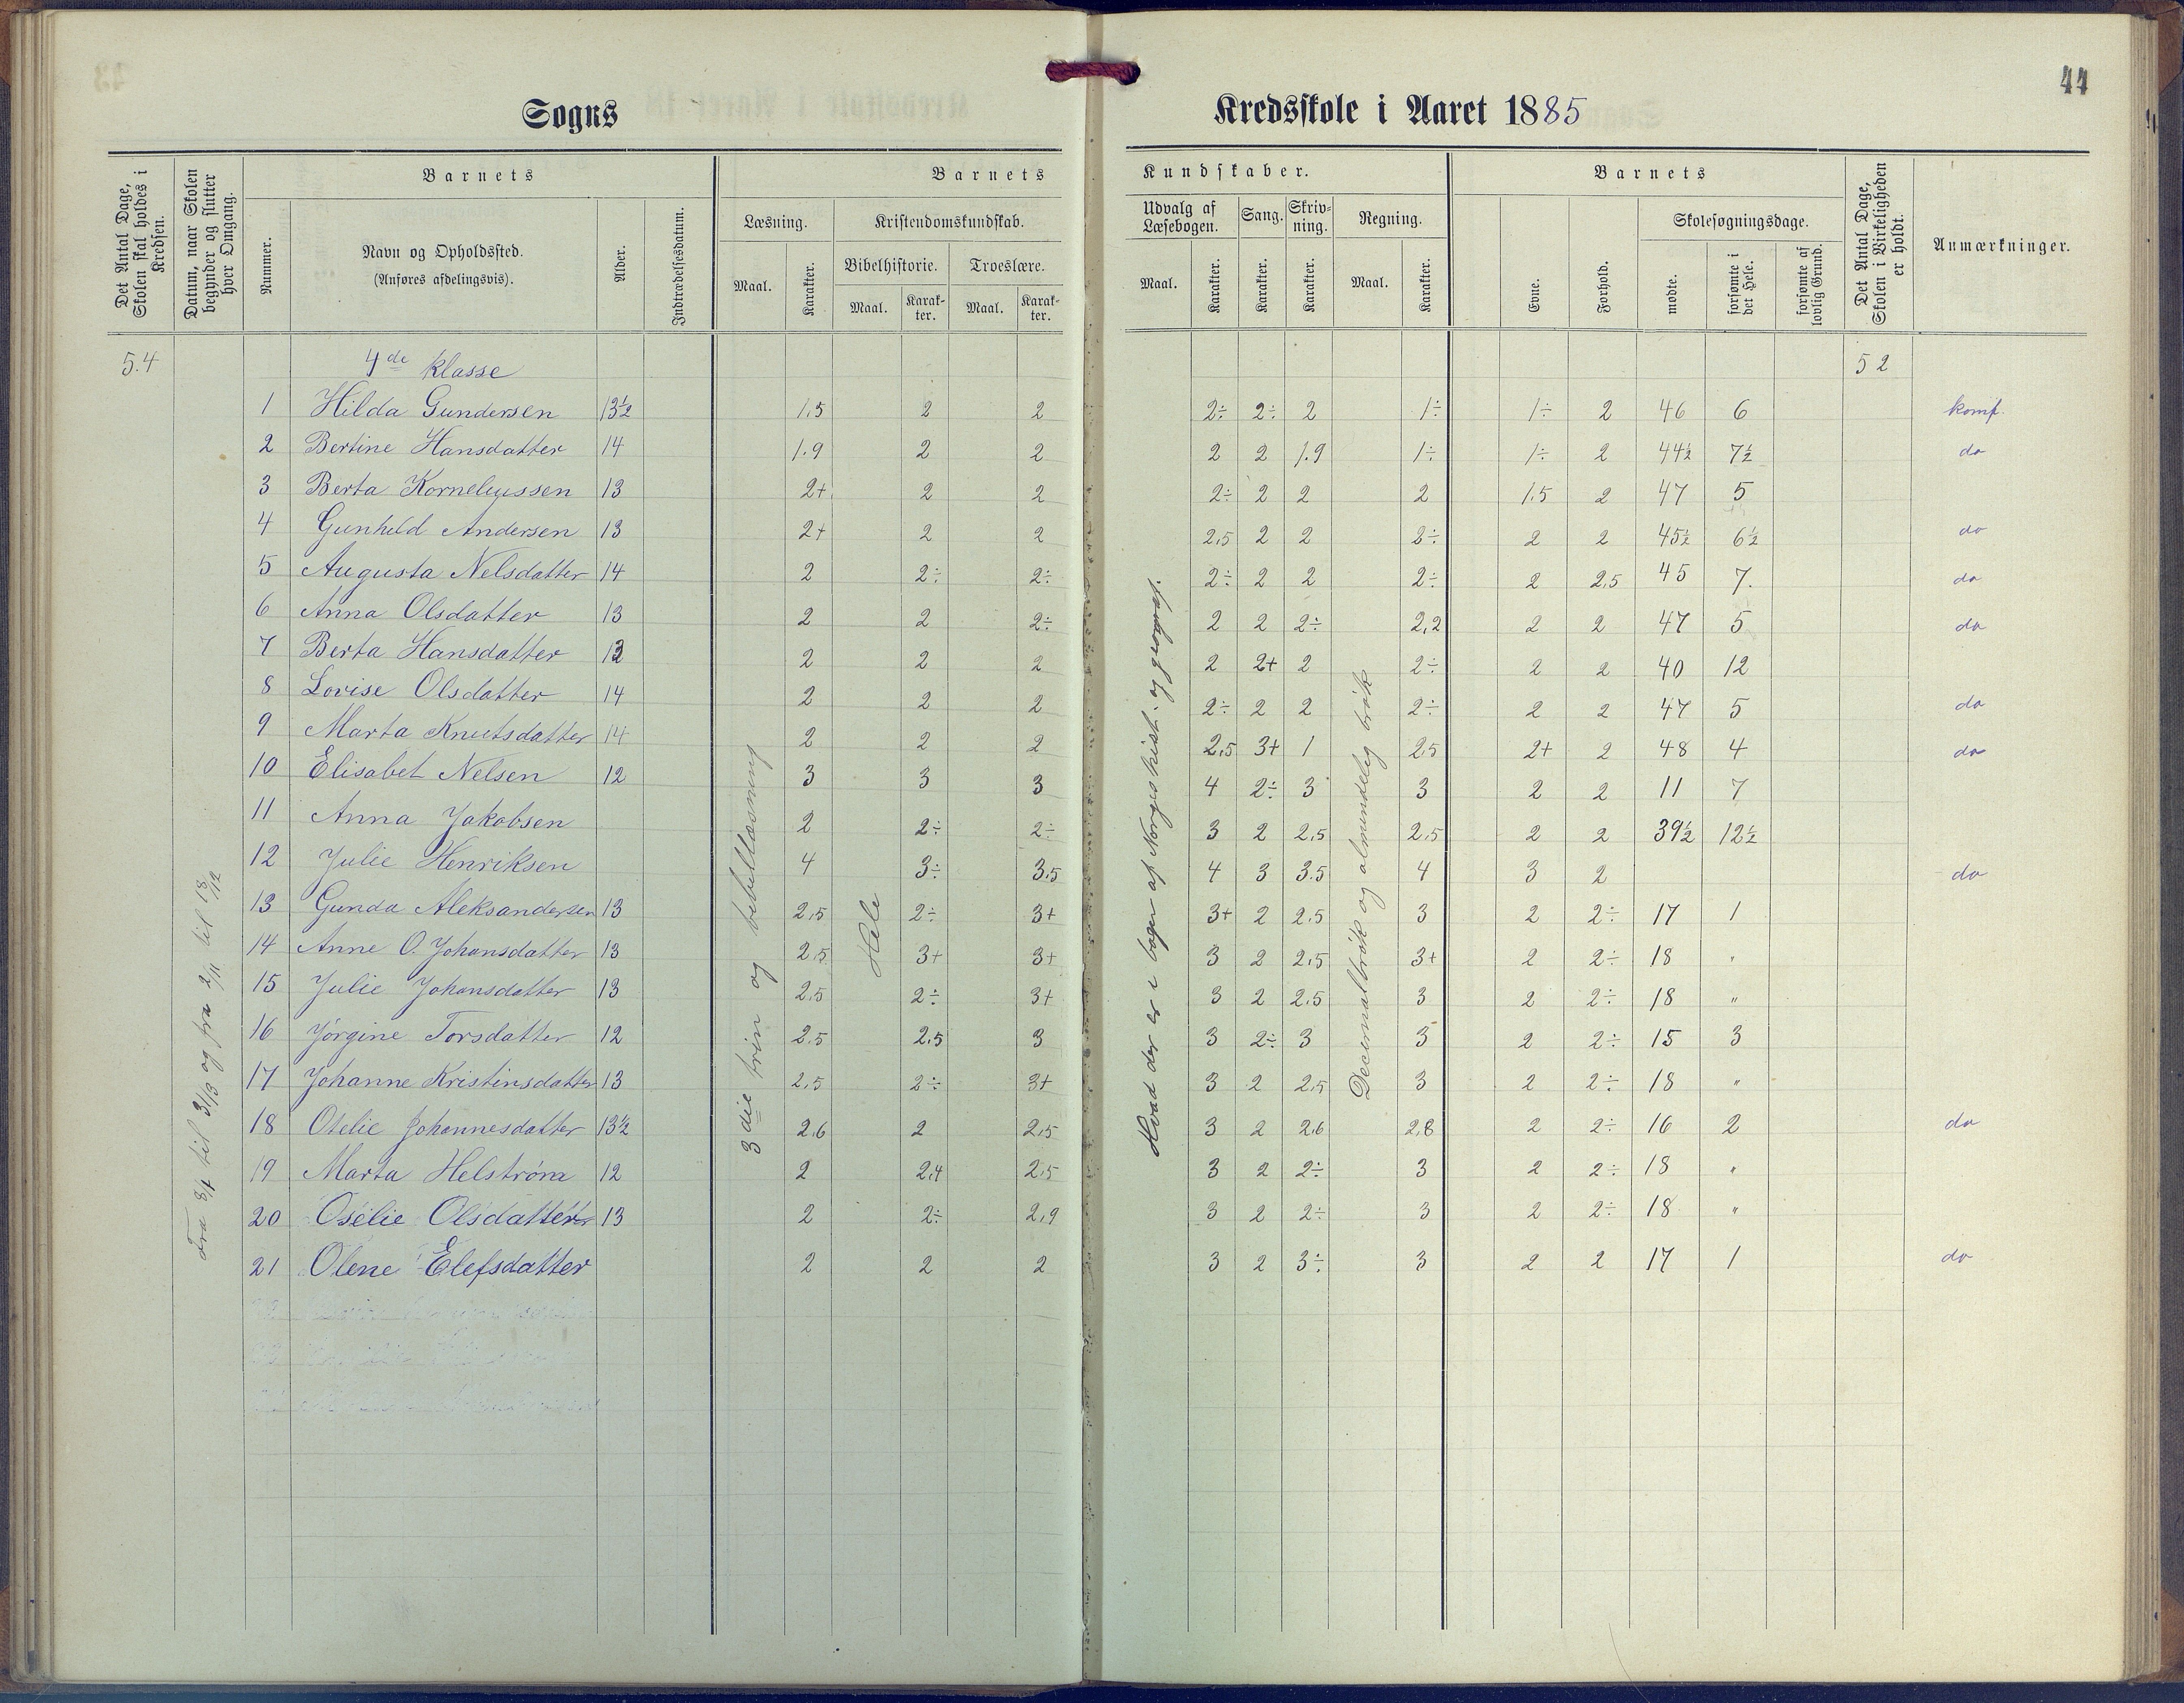 44
Sogns Kredsskole i Aaret 1885
Det Antal Dage, Skolen skal holdes i Kredsen.
Datum, naar Skolen begynder og slutter hver Omgang.
Barnets
Nummer.
Navn og Opholdssted.
(Anføres afdelingsvis).
Alder.
Indtrædelsesdatum.
Barnets Kundskaber.
Læsning.
Maal.
Karakter.
Kristendomskundskab.
Bibelhistorie.
Maal.
Karakter.
Troeslære.
Maal.
Karakter.
Udvalg af Læsebogen.
Maal.
Karakter.
Sang.
Karakter.
Skrivning.
Karakter.
Regning.
Maal.
Karakter.
Barnets
Evne.
Forhold.
Skolesøgningsdage.
mødte.
forsømte i det Hele.
forsømte af lovlig Grund.
Det Antal Dage, Skolen i Virkeligheden er holdt.
Anmærkninger.
5.4 4de klasse 52
1 Hilda Gundersen 13½ 1,5 2 2 2÷ 2÷ 2 1÷ 1÷ 2 46 6 komf.
2 Bertine Hansdatter 14 1.9 2 2 2 2 1.9 1÷ 1÷ 2 44½ 7½ do
3 Berta Kornelyussen 13 2+ 2 2 2÷ 2 2 2 1.5 2 47 5
4 Gunhild Andersen 13 2+ 2 2 2,5 2 2 2÷ 2 2 45½ 6½ do
5 Augusta Nelsdatter 14 2 2÷ 2÷ 2÷ 2 2 2÷ 2 2,5 45 7. do
6 Anna Olsdatter 13 2 2 2÷ 2 2 2÷ 2,2 2 2 47 5 do
7 Berta Hansdatter 12 2 2 2 2 2+ 2 2÷ 2 2 40 12
8 Lovise Olsdatter 14 2 2 2 2÷ 2 2 2÷ 2 2 47 5 do
9 Marta Knutsdatter 14 2 2 2 2,5 3+ 1 2,5 2+ 2 48 4 do
10 Elisabet Nelsen 12 3 3 3 4 2÷ 3 3 2 2 11 7
11 Anna Jakobsen 2 2÷ 2÷ 3 2 2,5 2,5 2 2 39½ 12½
12 Julie Henriksen 4 3÷ 3,5 4 3 3.5 4 3 2 do
13 Gunda Aleksandersen 13 2,5 2÷ 3+ 3+ 2 2.5 3 2 2÷ 17 1
14 Anne O. Johansdatter 13 2,5 3+ 3+ 3 2 2,5 3+ 2 2÷ 18 "
15 Julie Johansdatter 13 2,5 2÷ 3+ 3 2 2.5 3 2 2÷ 18 "
16 Jörgine Torsdatter 12 2.5 2,5 3 3 2÷ 3 3 2 2÷ 15 3
17 Johanne Kristinsdatter 13 2,5 2÷ 3+ 3 2 2,5 3 2 2÷ 18 "
18 Otelie Johannesdatter 13½ 2,6 2 2,5 3 2 2,6 2,8 2 2÷ 16 2 do
19 Marta Helström 12 2 2,4 2,5 3 2 2÷ 3 2 2÷ 18 "
20 Osélie Olsdatter 13 2 2÷ 2,9 3 2 2÷ 3 2 2÷ 18 "
21 Olene Elefsdatter 2 2 2 3 2 3÷ 3 2 2 17 1 do
Fra 8/1 til 3/3 og fra 2/11 til 18/12
3die trin og bibellæsning
Hele
Hvad der er i bogen af Norges hist. og geograf.
Decemalbrök og almindelig brök